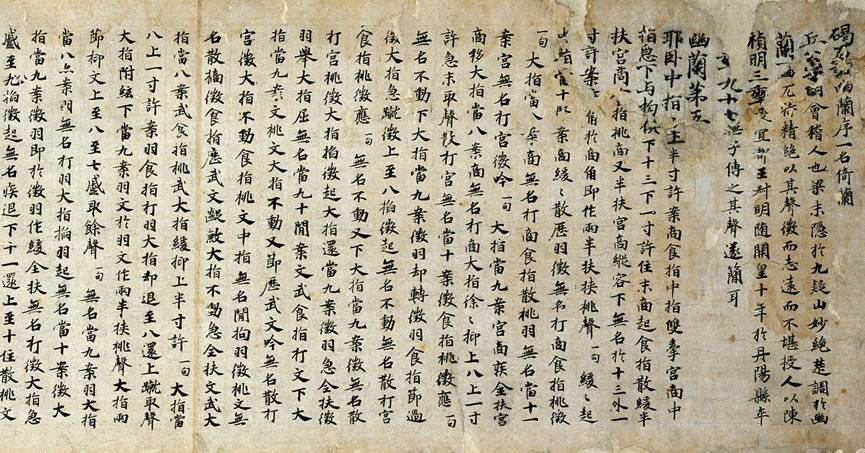 碣石調幽蘭序一名倚蘭
丘公字明會稽人也梁末隱於九疑山妙絕楚調於幽
蘭一曲尤特精絕以其聲微而志遠而不堪授人以陳
禎明三年授宜都王叔明隨開皇十年於丹陽縣卒
年九十七無子傳之其聲遂簡耳
幽蘭第五
耶臥中指半寸許案商食指中指雙牽宮商中
指急下与拘俱下十三下一寸許住末商起食指散緩半
扶宮商食指挑商又半扶宮商縱容下無名於十三外一
寸許案商角於商角即作兩半扶挾挑聲一句緩〻起
無名當十二案商緩〻散歷羽徵無名打商食指挑徵
一句大指當八案商無名打商食指散挑羽無名當十一
案宮無名打宮徵吟一句大指當九案宮商疾全扶宮
商移大指當八案商無名打商大指徐〻抑上八上一寸
許急末取聲散打宮無名當十案徵食指挑徵應一句
無名不動下大指當九案徵羽却轉徵羽食指節過
徵大指急蹴徵上至八掐徵起無名不動無名散打宮
食指挑徵應一句無名不動又下大指當九案徵無名散
打宮挑徵大指掐徵大指還當九案徵羽急全扶徵
羽舉大指屈無名當九十間案文武食指打文下大
指當九案文挑文大指不動又節應武文吟無名散打
宮徵大指不動食指挑文中指無名間拘羽徵挑文無
名散摘徵食指應武文大指不動急全扶文武大
指當八案武食指挑武大指緩抑上半寸許一句大指當
八上一寸許案羽食指打羽大指却退至八還上蹴取聲
大指附絃下當九案羽文於羽文作兩半挾挑聲大指兩
節抑文上至八至七蹙取餘聲一句無名當九案羽大指
當八案間無名打羽大指掐羽起無名當十案徵大
指當九案徵羽即於徵羽作緩全扶無名打徵大指急
蹙至八掐徵起無名疾退下十一還上至十住散挑文